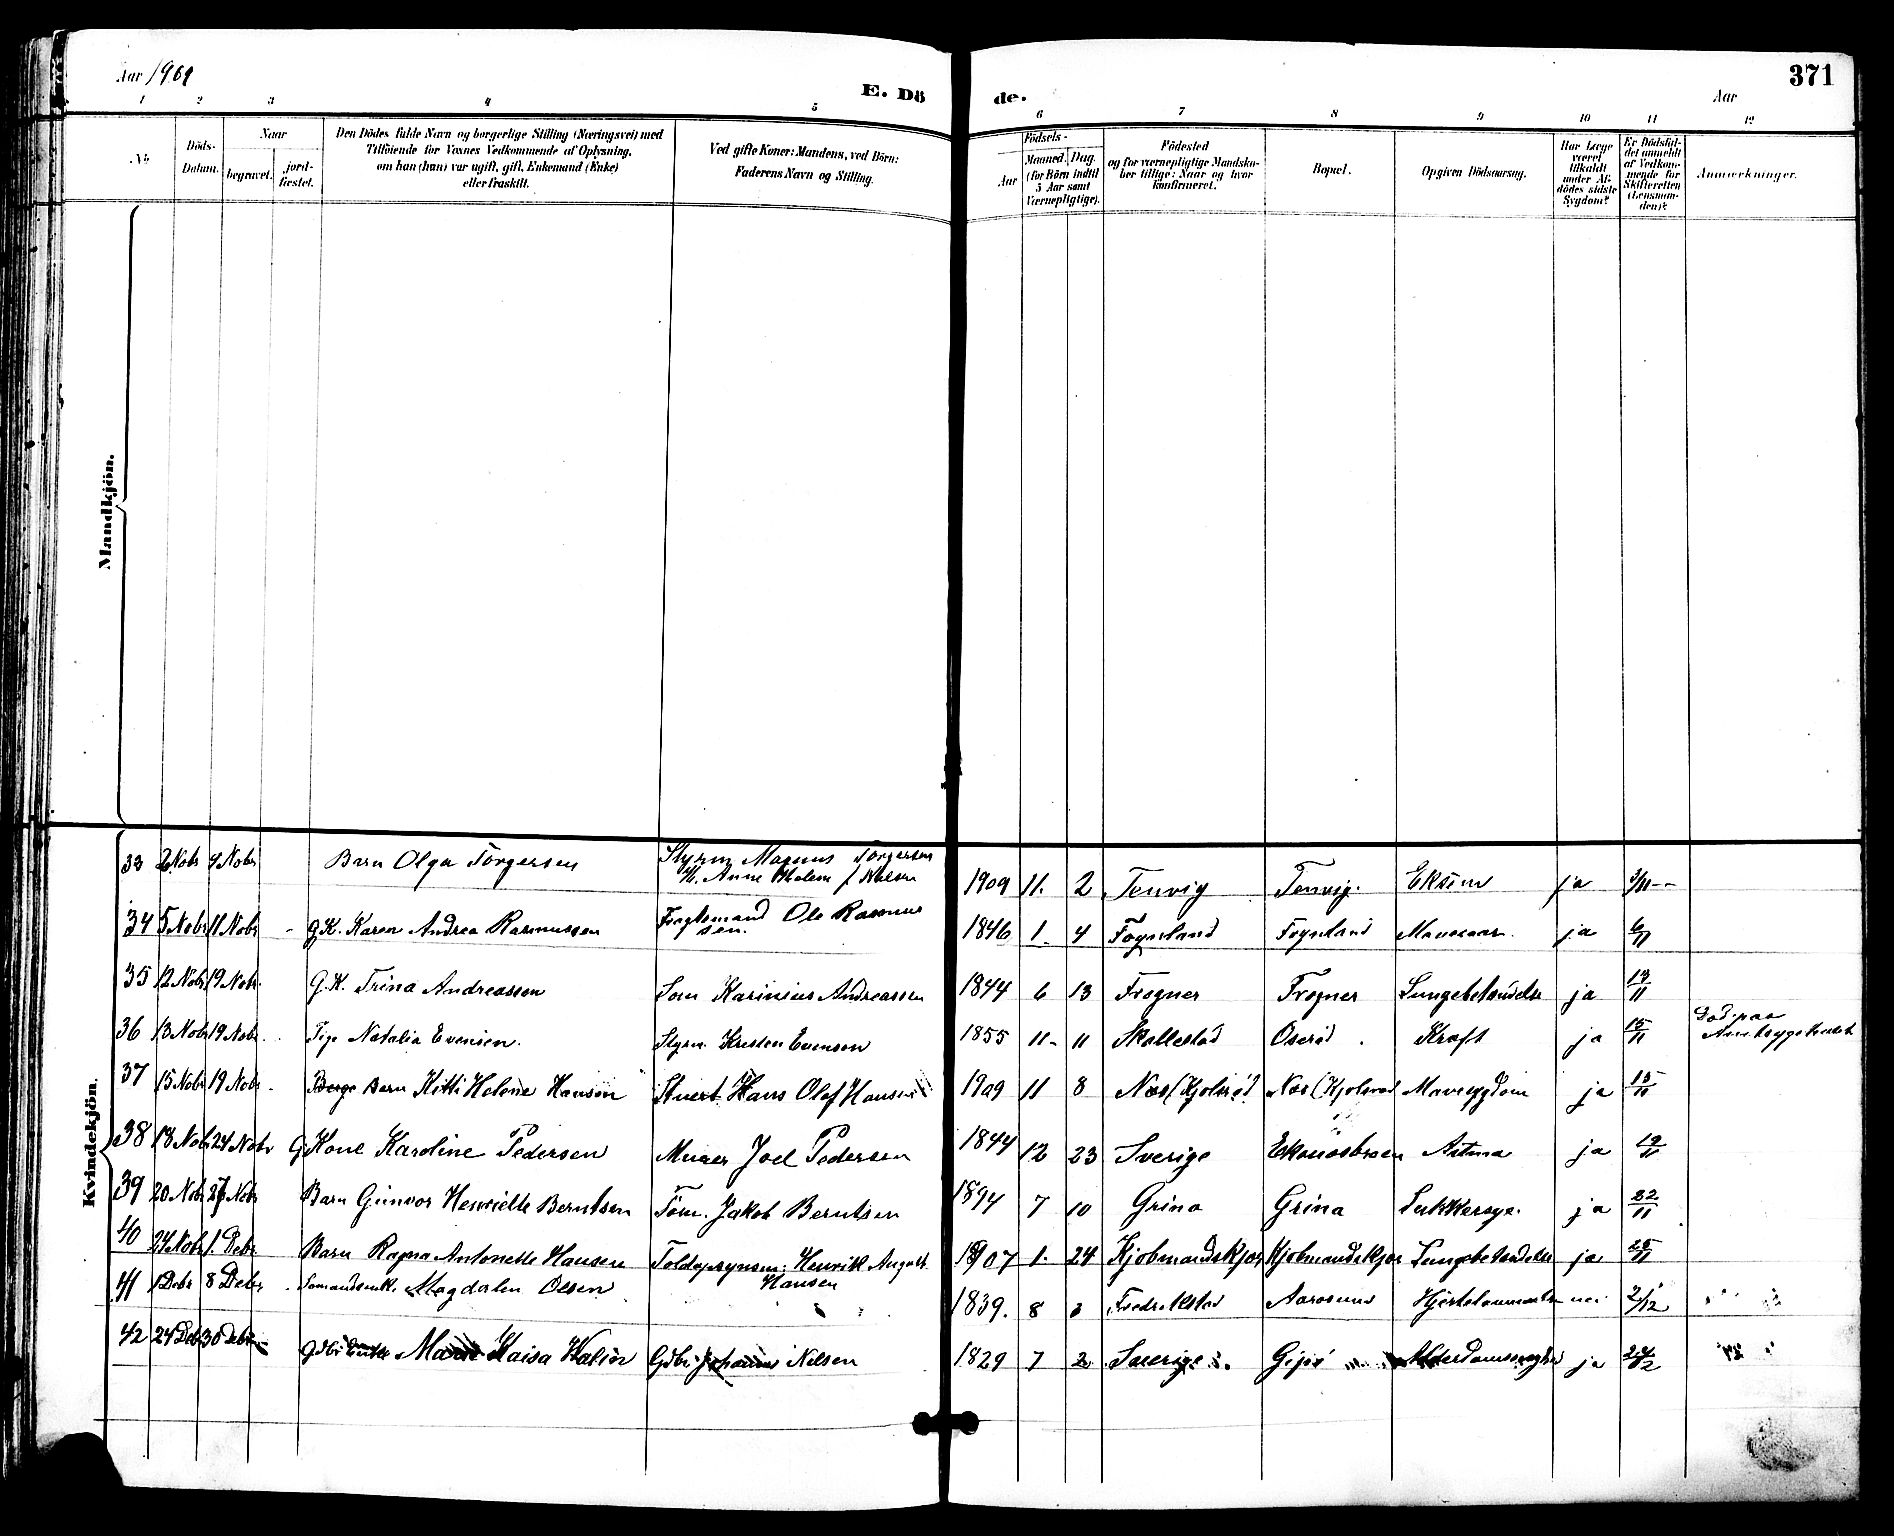 Aar 1909
E. Dö
de.
Aar
371
1 2 3 4 5 6 7 8 9 10 11 12
No.
Döds-
Datum.
Naar
begravet.
jord-
fæstet.
Den Dödes fulde Navn og borgerlige Stilling (Næringsvei) med
Tilföiende for Voxnes Vedkommende af Oplysning,
om han (hun) var ugift, gift, Enkemand (Enke)
eller fraskilt.
Ved gifte Koner: Mandens, ved Börn:
Faderens Navn og Stilling.
Födsels-
Aar
Maaned. Dag.
(for Börn indtil
5 Aar samt
Værnepligtige).
Födested
og for værnepligtige Mandska-
ber tillige: Naar og hvor
konfirmeret.
Bopæl.
Opgiven Dödsaarsag.
Har Læge
været
tilkaldt
under Af-
dödes sidste
Sygdom?
Er Dödsfal-
det anmeldt
af Vedkom-
mende for
Skifteretten
(Lensman-
den)?
Anmærkninger.
Mandkjön.
Kvindekjön.
33 2 Nobr 9 Nobr Barn Olga Torgersen Styrm Magnus Torgersen
1909 11. 2 Tenvig Tenvig. Eksem ja 3/11
34 5 Nobr 11 Nobr - G.K. Karen Andrea Rasmussen Fragtemand Ole Rasmus
sen. 1846 1. 4 Føynland Føynland Mavesaar. ja 6/11
35 12 Nobr 19 Nobr. G.K. Trina Andreassen Søm Karinius Andreassen 1844 6 13 Frogner Frogner Lungebetændelse ja 13/11
36 13 Nobr 19 Nobr. Pige Natalia Evensen. Styrm. Kristen Evensen 1855 11 11 Skallestad Oserød. Kræft ja 15/11 Død paa
Amtssygehuset
37 15 Nobr 19 Nobr. Barn Kitti Helene Hansen Stuert Hans Olaf Hansen 1909 11 8 Næs (Kjølerød. Næs (Kjølerød Mavesygdom ja 15/11
38 18 Nobr 24 Nobr G Kone Karoline Pedersen Murer Joel Pedersen 1844 12 23 Sverige Ekenæsbraaen Astma ja 19/11
39 20 Nobr 27 Nobr Barn Gunvor Henriette Berntsen Tøm. Jakob Berntsen 1894 7 10 Grina Grina Sukkersyge. ja 22/11
40 24 Nobr 1. Debr Barn Ragna Antonette Hansen Toldopsynsm. Henrik August
Hansen 1907 1. 24 Kjøbmandskjær Kjøbmandskjær Lungebetændelse ja 25/11
41 1 Debr 8 Debr. Sømandsenke. Magdalen Olsen 1839. 8 3 Fredrikstad Aarøsund Hjertelammelse nei 2/12
42 24 Debr 30 Debr Gdbr Enke Kaisa Katrin Gdbr Johannes Nilsen 1829 7 2 Sverige Gipø Alderdomssvaghed ja 24/12